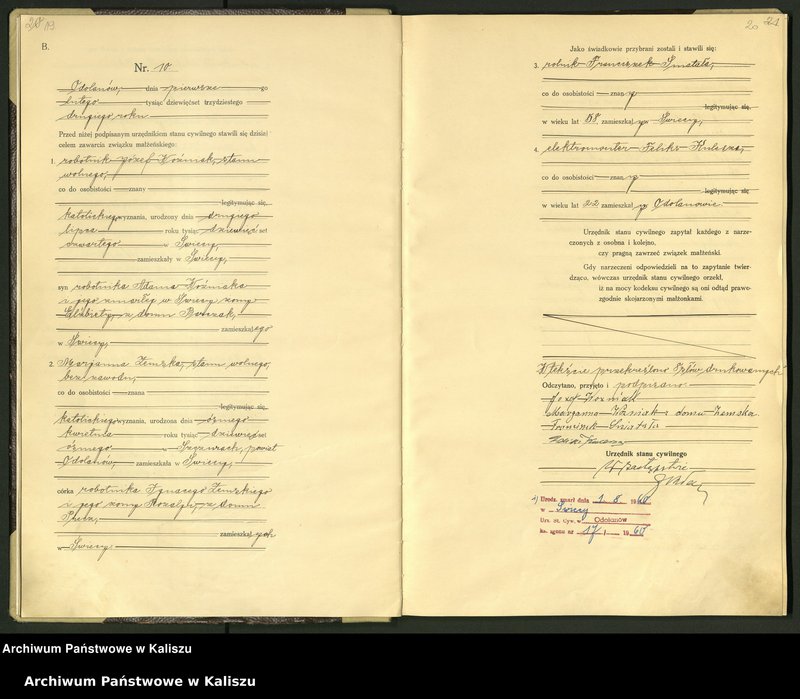 B.
Nr. 10
Odolanów, dnia pierwszego
lutego tysiąc dziewięćset trzydziestego
drugiego roku
Przed niżej podpisanym urzędnikiem stanu cywilnego stawili się dzisiaj
celem zawarcia związku małżeńskiego:
1. robotnik Józef Woźniak, stanu
wolnego,
co do osobistości znany
legitymując się,
katolickiego wyznania, urodzony dnia drugiego
lipca roku tysiąc dziewięćset
czwartego w Świecy,
zamieszkały w Świecy,
syn robotnika Adama Woźniaka
i jego zmarłej w Świecy żony
Elżbiety, z domu
zamieszkałego
w Świecy,
2. Marjanna Żemska, stanu wolnego,
bez zawodu,
co do osobistości znana
legitymując się,
katolickiego wyznania, urodzona dnia ósmego
kwietnia roku tysiąc dziewięćset
ósmego w powiat
Odolanów, zamieszkała w Świecy,
córka robotnika Ignacego Żemskiego
i jego żony Rozalji, z domu
zamieszkałych
w Świecy
21
Jako świadkowie przybrani zostali i stawili się:
3. rolnik Franciszek Smatała,
co do osobistości znany
legitymując się,
w wieku lat 58 zamieszkały w Świecy,
4. elektromonter Feliks
co do osobistości znany
legitymując się
w wieku lat 22 zamieszkały w Odolanowie
Urzędnik stanu cywilnego zapytał każdego z narze-
czonych z osobna i kolejno,
czy pragną zawrzeć związek małżeński.
Gdy narzeczeni odpowiedzieli na to zapytanie twier-
dząco, wówczas urzędnik stanu cywilnego orzekł,
iż na mocy kodeksu cywilnego są oni odtąd prawo-
zgodnie skojarzonymi małżonkami.
W tekście przekreślono słów drukowanych
Odczytano, przyjęto i podpisano
Józef Woźniak
Marjanna Woźniak z domu Żemska
Franciszek
Urzędnik stanu cywilnego
W zastępstwie
Urodz. zmarł dnia 1. 8. 1960
w Świecy
Urz. St. Cyw. w Odolanów
ks. zgonu nr 17/ 1960
Archiwum Państwowe w Kaliszu
Archiwum Państwowe w Kaliszu